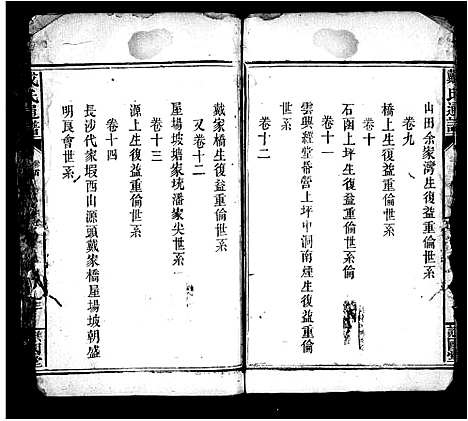 戴氏通譜
山田余家灣生復益重倫世系
卷九
橋上生復益重倫世系
卷十
石函上坪生復益重倫世系倫
卷十一
雲興經堂番營上坪中洞南煙生復益重倫
世系
卷十二
戴家橋生復益重倫世系
又卷十二
屋場坡塘家垸潘家尖世系
卷十三
源上生復益重倫世系
卷十四
長沙代家塅西山源頭戴家橋屋場坡朝盛
明良會世系
戴氏通譜